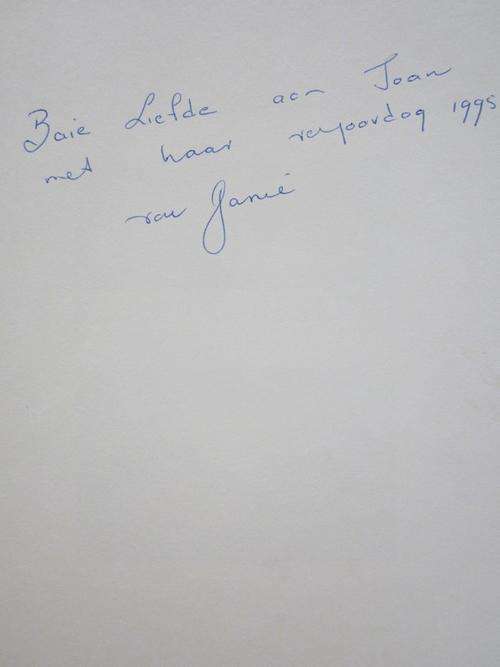 Baie Liefde aan Joan
met haar verjaardag 1995
van Janie